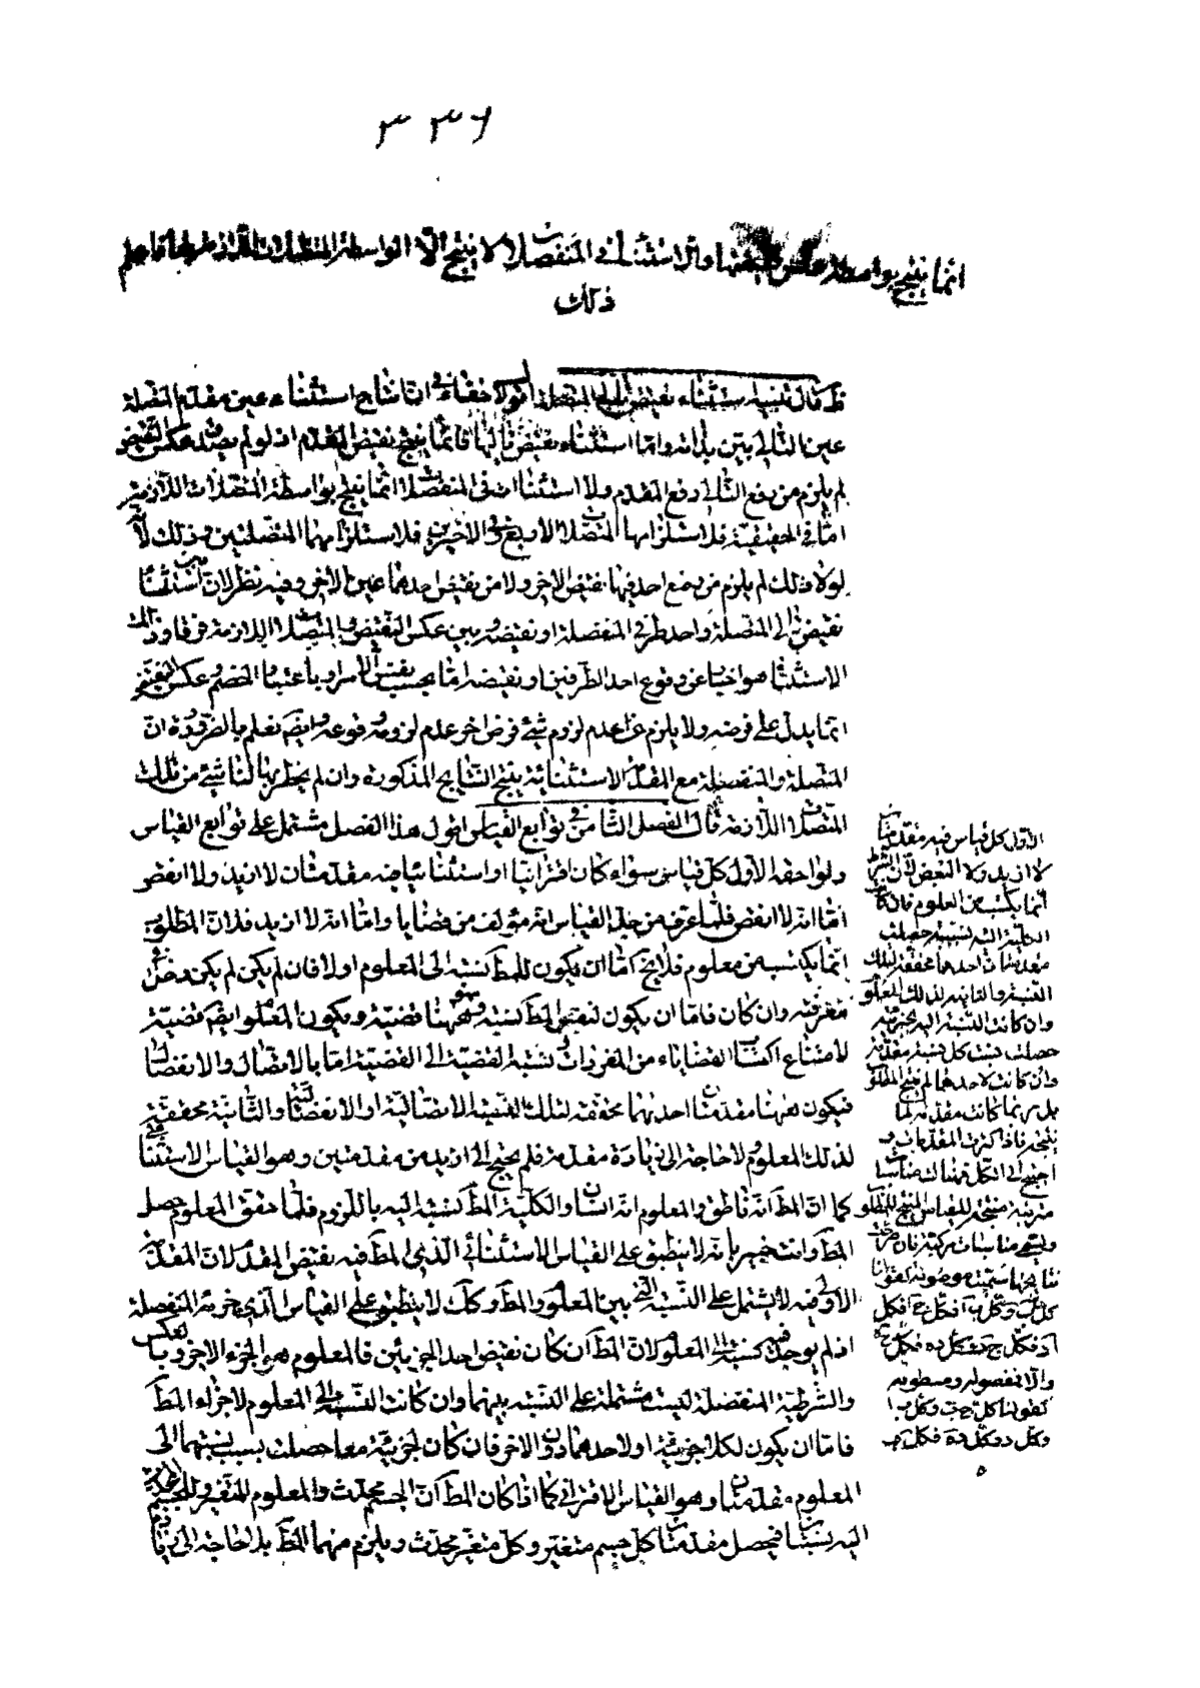 ٣٣٦
انما ينتج بواسطة عكس نقيضها وان استثنا فى المنفصلا لا ينتج الا بواسطة المتصلات اللازمة لها فاعلم
ذلك
قال تنبيه استثناء نقيض تالى المتصلة اقول لا خفاء فى ان انتاج استثناء عين مقدم المتصلة
عين التالى بين بذاته واما استثناء نقيض تاليها فانما ينتج نقيض المقدم اذ لو لم يصدق عكس النقيض
لم يلزم من رفع التالى رفع المقدم ولا استثناات فى المنفصلات انما ينتج بواسطة المتصلات اللازمة
اما فى الحقيقية فلاستلزامها المتصلات الاربع وفى الاخيرين فلاستلزامهما المتصلتين وذلك لانه
لولا ذلك لم يلزم من وضع احدهما نقيض الاخر ولا من نقيض احدهما عين الاخر وفيه نظر لان بين استثنا
نقيض تالى المتصلة واحد طرفى المنفصلة او نقيضه وبين عكس النقيض والمتصلات اللازمة فرقا وذلك لان
الاستثنا هو اخبار عن وقوع احد الطرفين او نقيضه اما بحسب نفس الامر او باعتبار الخصم وعكس النقيض
انما يدل على فرضه ولا يلزم من عدم لزوم شئ فرض اخر عدم لزومه وقوعه وايضا نعلم بالضرورة ان
المتصلة والمنفصلة مع المقدمة الاستثنائية ينتج النتايج المذكورة وان لم يخطر ببالنا شئ من تلك
المتصلات اللازمة قال الفصل الثامن فى توابع القياس اقول هذا الفصل مشتمل على توابع القياس
ولواحقه الاول كل قياس سواء كان اقترانيا او استثنائيا فيه مقدمتان لا ازيد ولا انقص
اما انه لا انقص فلما عرف من حد القياس انه مؤلف من قضايا واما انه لا ازيد فلان المطلوب
انما يكتسب من معلوم فلا يخ اما ان يكون للمط نسبة الى المعلوم اولا فان لم يكن لم يكن
معرفته وان كان فاما ان يكون لنفس المط نسبة وههنا قضية ويكون المعلوم ايضا قضية
لامتناع اكتساب القضاياء من المفردات ونسبة القضية الى القضية اما بالاتصال والانفصال
فيكون ههنا مقدمتان احديهما محققة لتلك النسبة الاتصالية او الانفصالية والثانية محققة
لذلك المعلوم ولا حاجة الى زيادة مقدمة فلم يحتج الى ازيد من مقدمتين وهو القياس الاستثنائى
كما ان المط انه ناطق والمعلوم انه انسان والكلية المط نسبة اليه باللزوم فلما حقق المعلوم حصل
المط وانت خبير بانه لا ينطبق على القياس الاستثنائى الذى المط فيه نقيض المقدم لان المقدمة
الاولى فيه لا يشتمل على النسبة التى بين المعلوم والمط وكك لا ينطبق على القياس الذى جزءه المنفصلة
اذ لم يوجد فيه نسبة الى المعلوم لان المط ان كان نقيض احد الجزئين فالمعلوم هو الجزء الاخر وبالعكس
والشرطية المنفصلة ليست مشتملة على النسبة بينهما وان كانت النسبة الى المعلوم لاجزاء المط
فاما ان يكون لكلا جزئيه او لاحدهما دون الاخر فان كان لجزئيه معا حصلت بسبب نسبتهما الى
المعلوم مقدمتان وهو القياس الاقترانى كما اذا كان المط ان الجسم محدث والمعلوم المتغير وللجسم والمحدث
اليه نسبتان فيحصل مقدمتان كل جسم متغير وكل متغير محدث ويلزم منهما المط بلا حاجة الى زيادة
الاول كل قياس فيه مقدمتان
لا ازيد ولا انقص لان
انما يكتسب من المعلوم فان كان
الكلية اليه نسبة حصلت
مقدمتان احدهما محققة لتلك
النسبة والثانية لذلك المعلوم
وان كانت النسبة اليه بجزئيه
حصلت من كل نسبة مقدمة
وان كانت لاحدهما لم ينتج المطلوب
بل ربما كانت مقدمة لما
ينتجه فاذا كثرت المقدمات و
احتيج الى الكل فهناك قياسات
مترتبة منتجة للقياس المنتج للمطلوب
ويسمى قياسات مركبة فان صرحت
نتايجها سميت موصولة كقولنا
كل ج ب وكل ب آ فكل ج آ فكل
والا مفصولة ومطوية
كقولنا كل ج ب وكل ب آ